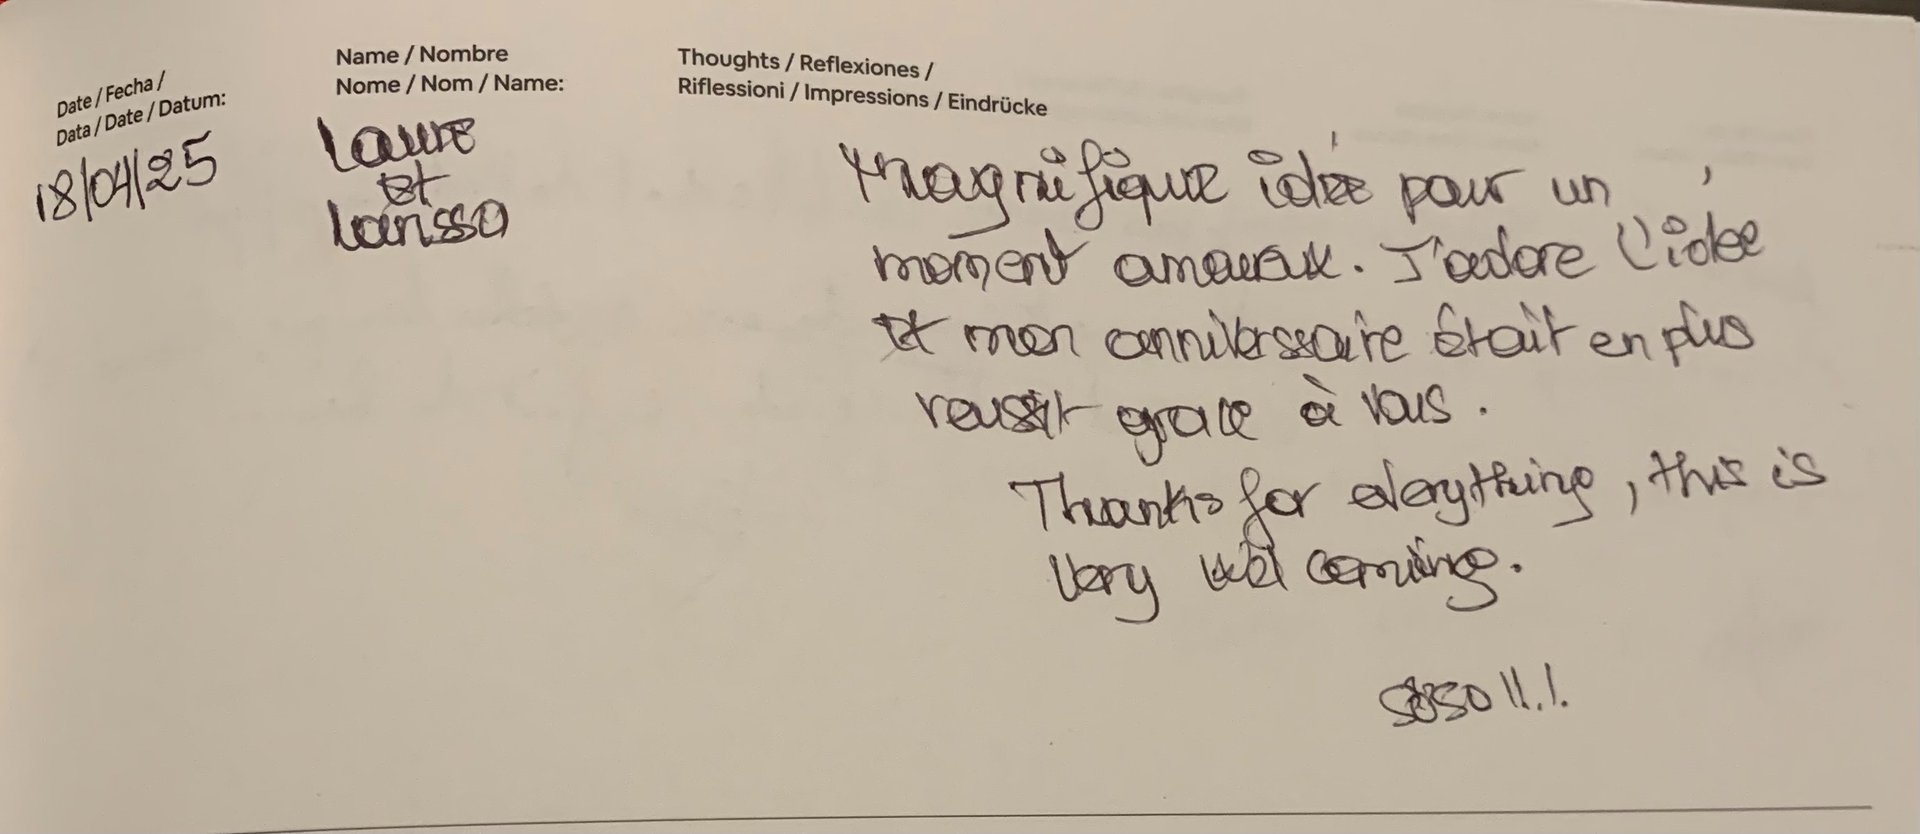 Date / Fecha /
Data / Date / Datum:
18/04/25
Name / Nombre
Nome / Nom / Name:
Laure
et
Larissa
Thoughts / Reflexiones /
Riflessioni / Impressions / Eindrücke
Magnifique idée pour un
moment amoureux. J'adore l'idée
et mon anniverssaire était en plus
reussit grace à vous.
Thanks for everything, this is
very welcoming.